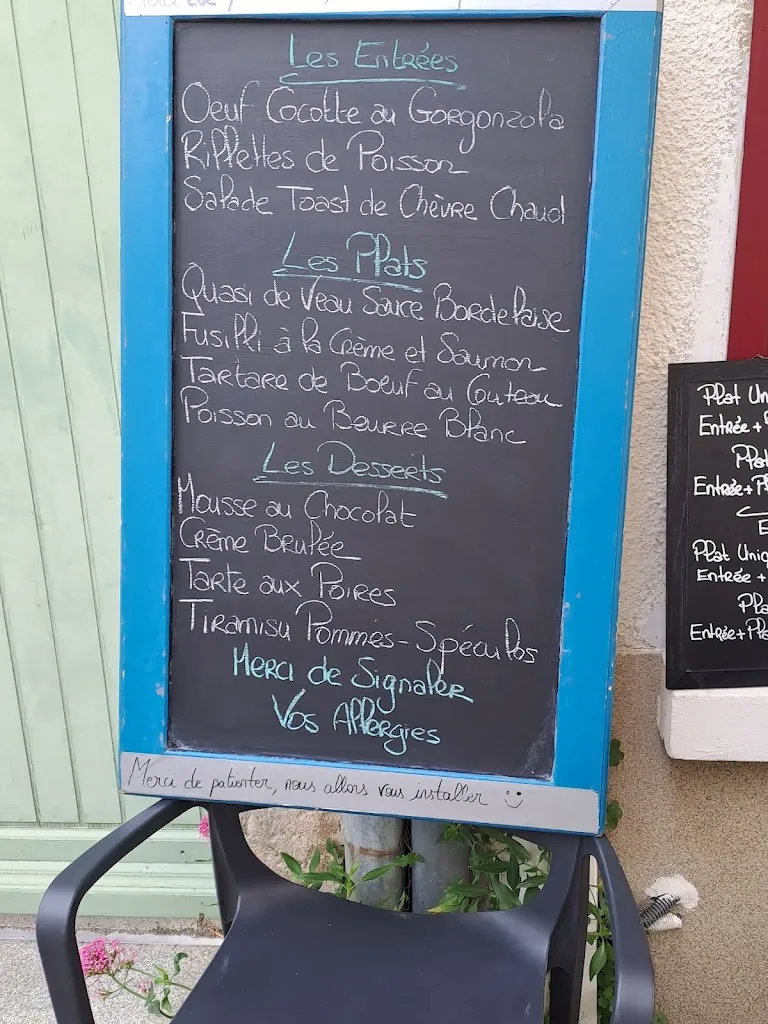 Les Entrées
Oeuf Cocotte au Gorgonzola
Rillettes de Poisson
Salade Toast de Chèvre Chaud
Les Plats
Quasi de Veau Sauce Bordelaise
Fusilli à la Crème et Saumon
Tartare de Boeuf au Couteau
Poisson au Beurre Blanc
Les Desserts
Mousse au Chocolat
Crème Brulée
Tarte aux Poires
Tiramisu Pommes-Spéculos
Merci de Signaler
Vos Allergies
Merci de patienter, nous allons vous installer
Plat
Entrée +
Entrée +
Plat
Entrée +
Entrée +